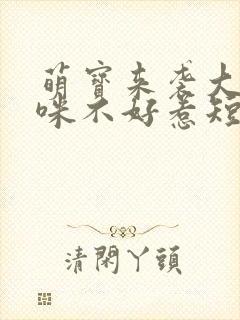 萌寶来袭大
咪不好惹短
清閑丫頭